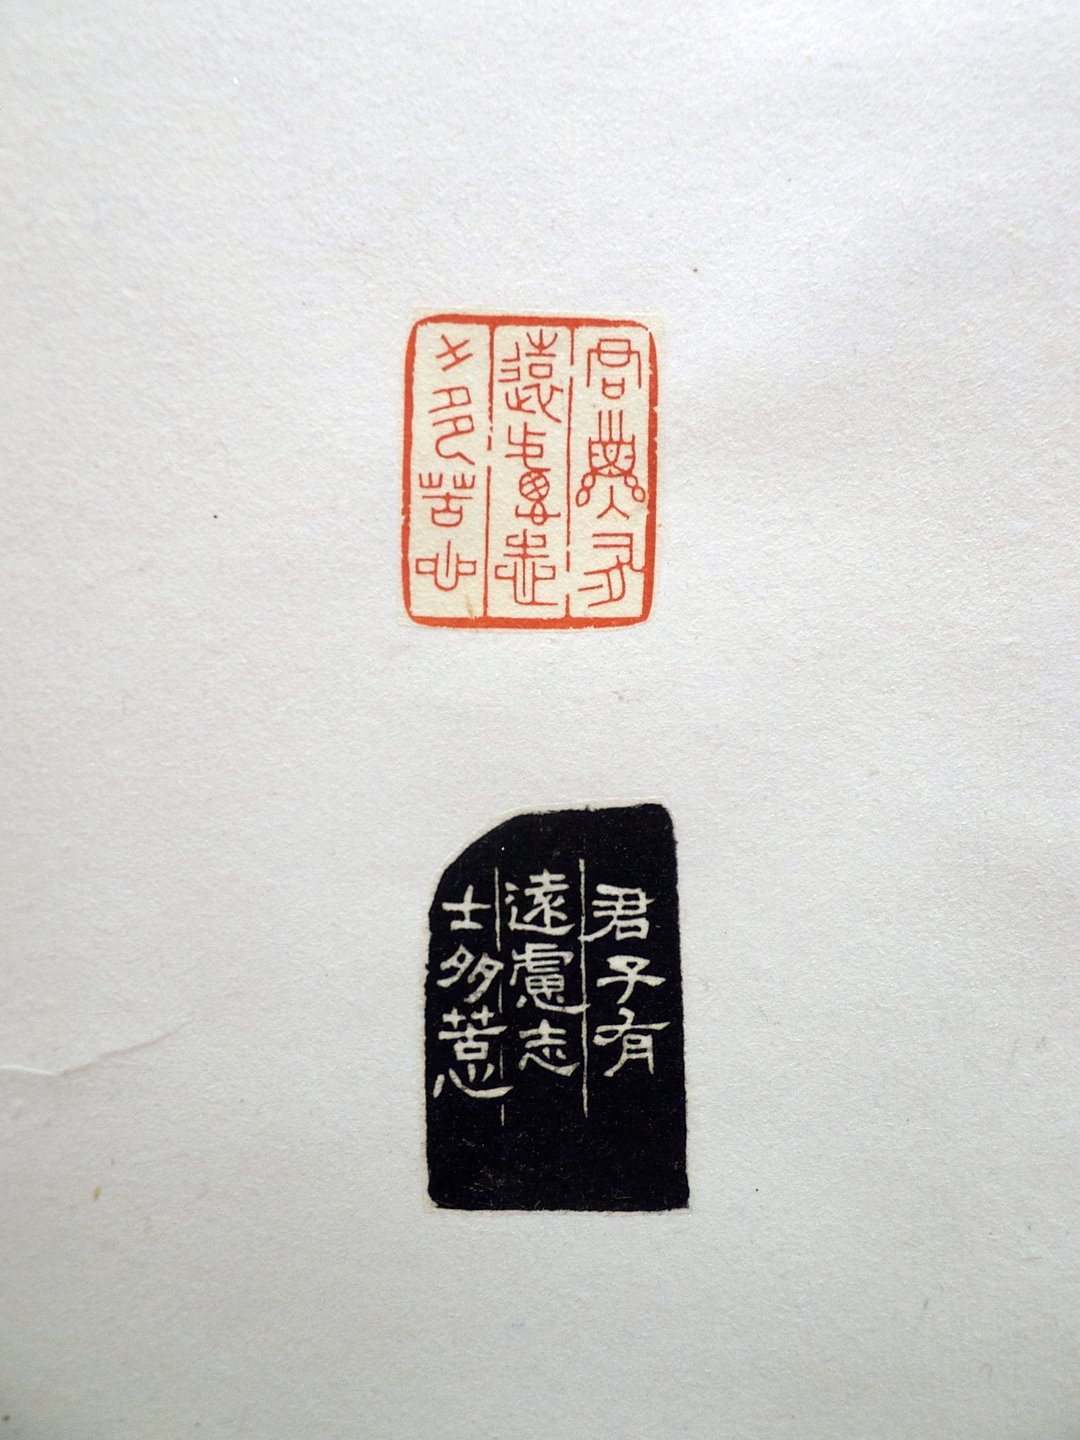 君子有
遠慮志
士多苦心
君子有
遠慮志
士多苦心